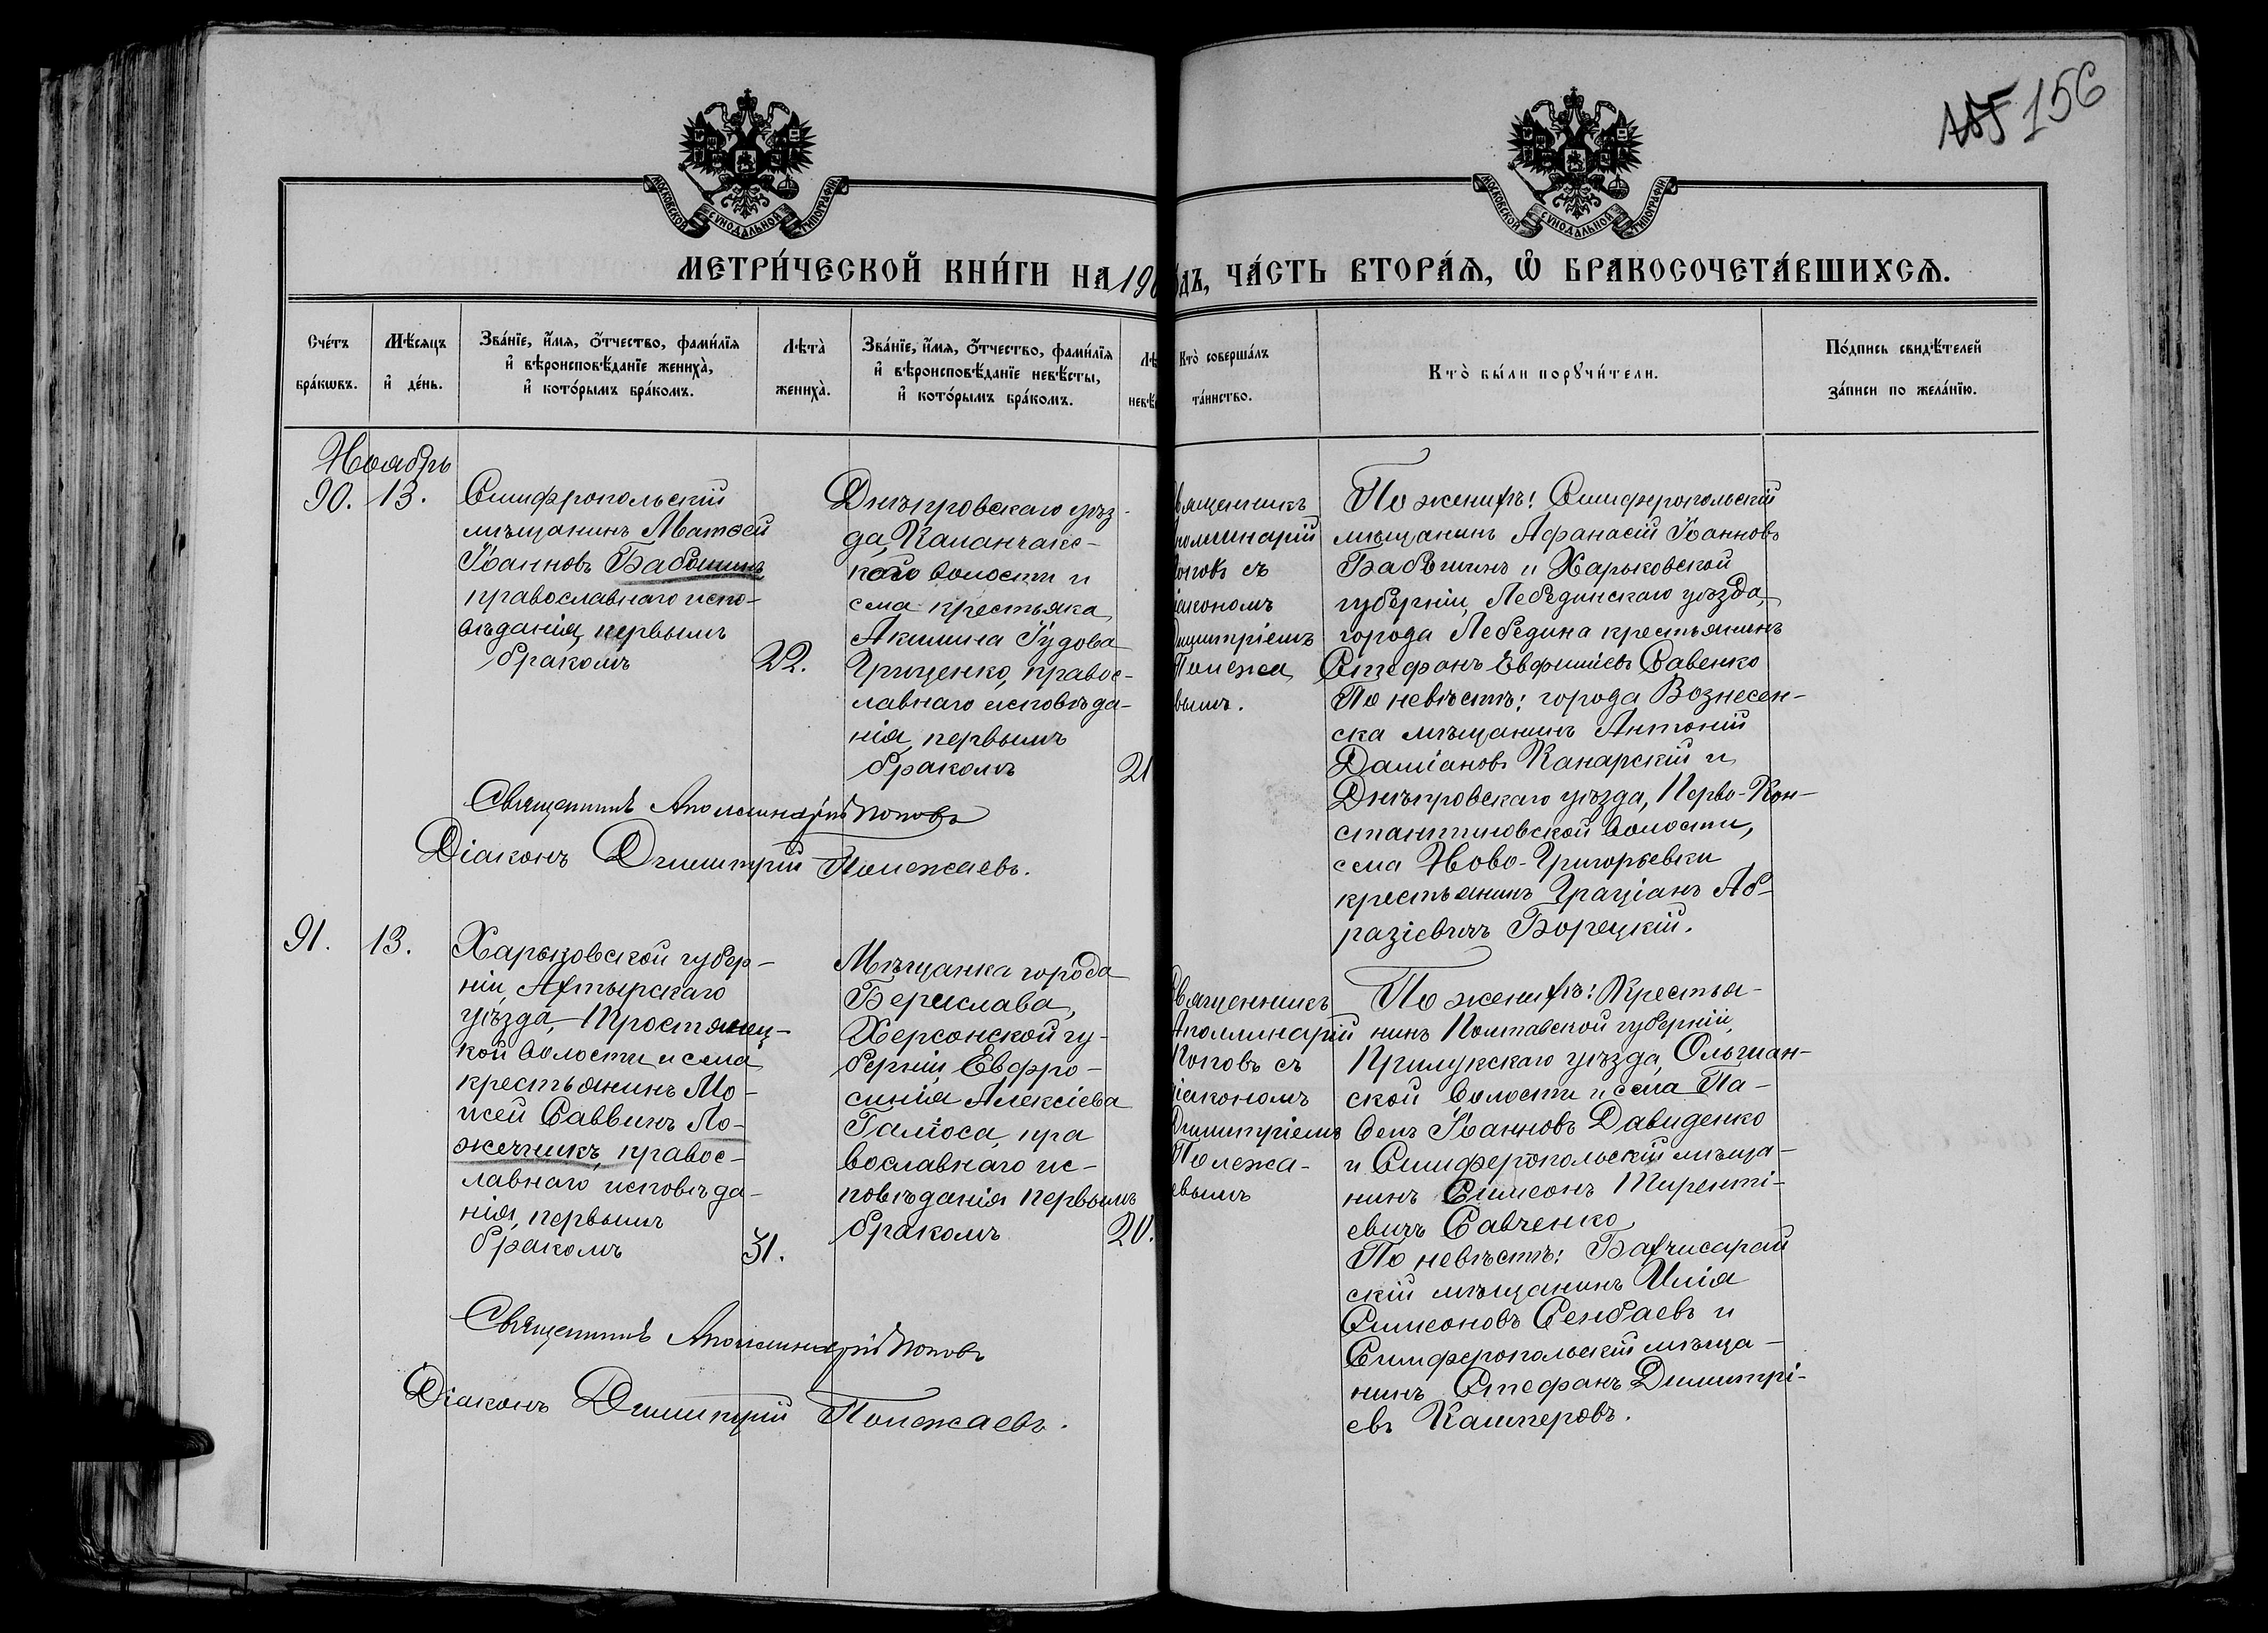 156
МОСКОВСКОЙ СУНОДАЛЬНОЙ ТИПОГРАФІИ
МОСКОВСКОЙ СУНОДАЛЬНОЙ ТИПОГРАФІИ
МЕТРИ́ЧЕСКОЙ КНИ́ГИ НА 190
ДЪ, ЧА́СТЬ ВТОРА́Я, Ѽ БРАКОСОЧЕТА́ВШИХСЯ.
Сче́тъ бра́кωвъ.
Мѣ́сяцъ и҆ де́нь.
Зва́нїе, и҆́мя, ѻ҆́тчество, фами́лїя
и҆ вѣроисповѣ́данїе жениха̀,
и҆ кото́рымъ бра́комъ.
Лѣта̀ жениха̀.
Зва́нїе, и҆́мя, ѻ҆́тчество, фами́лїя
и҆ вѣроисповѣ́данїе невѣ́сты,
и҆ кото́рымъ бра́комъ.
Лѣ
невѣ
Кто̀ соверша́лъ
та́инство.
Кто̀ бы́ли порꙋчи́тели.
По́дпись свидѣ́телей
за́писи по жела́нїю.
Ноябрь
90. 13.
Симфропольскій
мѣщанинъ Матѳей
Іоанновъ Бабешинъ
православнаго испо-
вѣданія, первымъ
бракомъ
22.
Днѣпровскаго уѣз-
да, Каланчакс-
кой волости и
села крестьяка
Акилина Іудова
Гриценко, правос-
лавнаго исповѣда-
нія, первымъ
бракомъ
21
вященникъ
поллинарій
оповъ съ
іакономъ
Димитріемъ
Полежа
вымъ.
По женихѣ: Симферопольскій
мѣщанинъ Афанасій Іоанновъ
Бабешинъ и Харьковской
губерніи, Лебединскаго уѣзда,
города Лебедина крестьянинъ
Стефанъ Евфиміевъ Савенко
По невѣстѣ: города Вознесен-
ска мѣщанинъ Антоній
Даміановъ Канарскій и
Днѣпровскаго уѣзда, Перво-Кон-
стантиновской волости,
села Ново-Григорьевки
крестьянинъ Граціанъ Аб-
разіевичъ Борецкій.
Священникъ Аполлинарій Поповъ
Діаконъ Димитрій Полежаевъ.
91. 13.
Харьковской губер-
ніи, Ахтырскаго
уѣзда, Тростянец-
кой волости и села
крестьянинъ Мо-
исей Саввинъ Ло-
жечникъ, правос-
лавнаго исповѣда-
нія, первымъ
бракомъ
31.
Мѣщанка города
Береслава,
Херсонской гу-
берніи, Евфро-
синія Алексіева
Галіоса, пра
вославнаго ис-
повѣданія первымъ
бракомъ
20.
Священникъ
Аполлинарій
Поповъ съ
діакономъ
Димитріемъ
Полежа-
евымъ
По женихѣ: Крестья-
нинъ Полтавской губерніи,
Прилукскаго уѣзда, Ольшан-
ской волости и села Па-
велъ Іоанновъ Давиденко
и Симферопольскій мѣща-
нинъ Симеонъ Тиренті-
евичъ Савченко
По невѣстѣ: Бахчисарай
скій мѣщанинъ Илія
Симеоновъ Сенбаевъ и
Симферопольскій мѣща-
нинъ Стефанъ Димитрі-
евъ Кашперовъ.
Священникъ Аполлинарій Поповъ
Діаконъ Димитрій Полежаевъ.